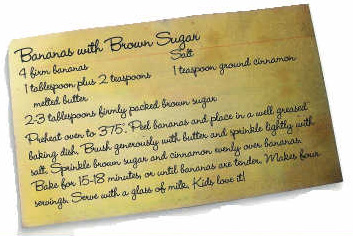 Bananas with Brown Sugar
4 firm bananas
Salt
1 tablespoon plus 2 teaspoons
1 teaspoon ground cinnamon
melted butter
2-3 tablespoons firmly packed brown sugar
Preheat oven to 375°. Peel bananas and place in a well greased
baking dish. Brush generously with butter and sprinkle lightly with
salt. Sprinkle brown sugar and cinnamon evenly over bananas.
Bake for 15-18 minutes, or until bananas are tender. Makes four
servings. Serve with a glass of milk. Kids love it!